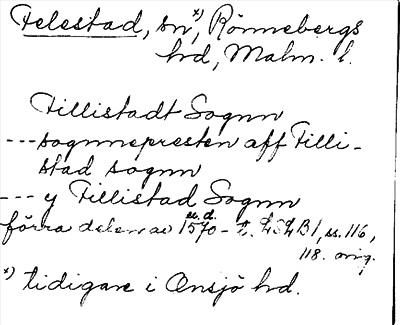 Felestad, sn x), Rönnebergs
hrd, Malm. l.
Fillistadt Sognn
--- sognnepresten aff Filli-
stad sognn
--- y Fillistad Sognn
förra delen av 1570- t. LöLB1, ss. 116,
u.d.
118. orig.
x) tidigare i Onsjö hrd.